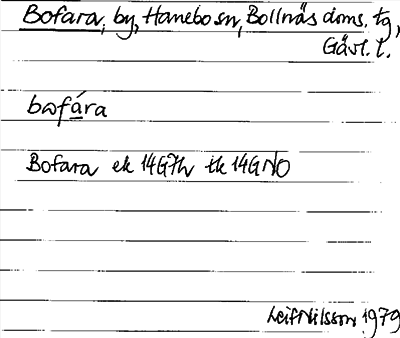 Bofara, by, Hanebo sn, Bollnäs doms. tg,
Gävl. l.
bωfára
Bofara ek 14G7h tk 14GNO
Leif Nilsson 1979